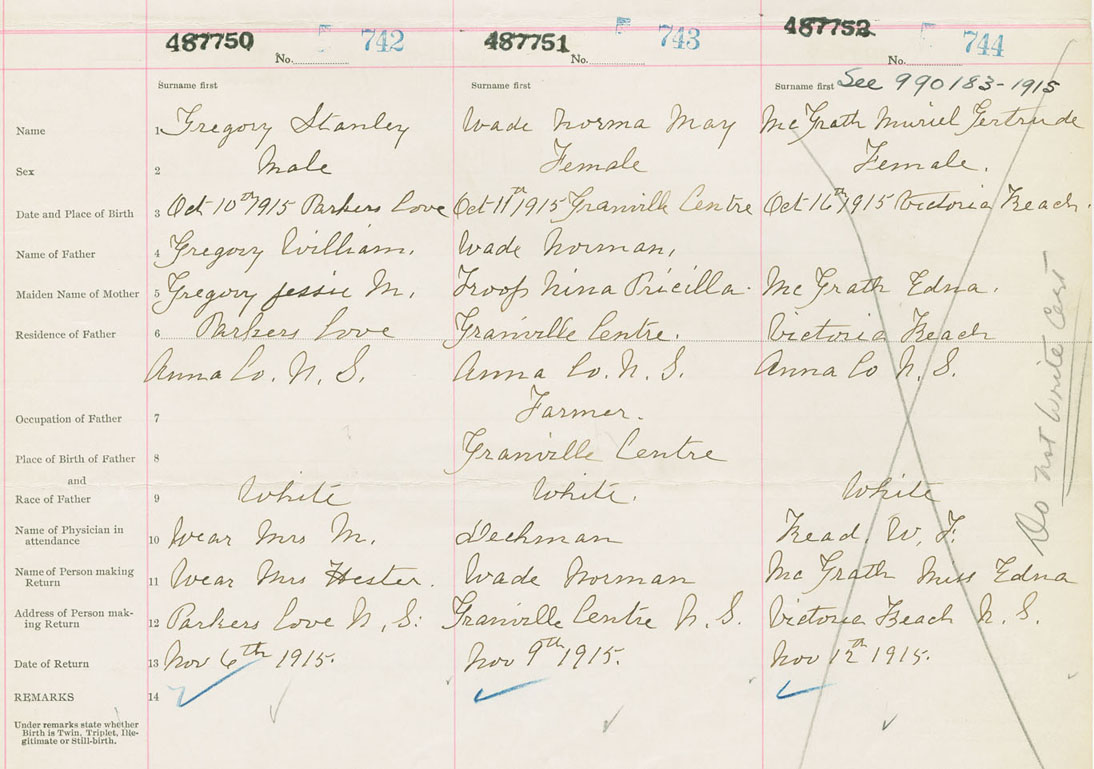 487750 742 487751 743 487752 744
No. No. No.
Surname first Surname first Surname first See 990183-1915
Name 1 Gregory Stanley Wade Norma May Mc Grath Muriel Gertrude
Sex 2 Male Female Female.
Date and Place of Birth 3 Oct 10th 1915 Parkers Cove Oct 11th 1915 Granville Centre Oct 16th 1915 Victoria Beach.
Name of Father 4 Gregory William. Wade Norman.
Maiden Name of Mother 5 Gregory Jessie M. Troop Nina Pricilla. Mc Grath Edna.
Residence of Father 6 Parkers Cove Granville Centre. Victoria Beach
Anna Co. N. S. Anna Co. N. S. Anna Co N. S.
Occupation of Father 7 Farmer.
Place of Birth of Father 8 Granville Centre
and
Race of Father 9 White White. White
Name of Physician in
attendance 10 Wear Mrs M. Dechman Read W. F.
Name of Person making
Return 11 Wear Mrs Hester. Wade Norman Mc Grath Miss Edna
Address of Person mak-
ing Return 12 Parkers Cove N. S. Granville Centre N. S. Victoria Beach N. S.
Date of Return 13 Nov 6th 1915. Nov 9th 1915. Nov 12th 1915.
REMARKS 14
Under remarks state whether
Birth is Twin, Triplet, Ille-
gitimate or Still-birth.
Do not write Cert